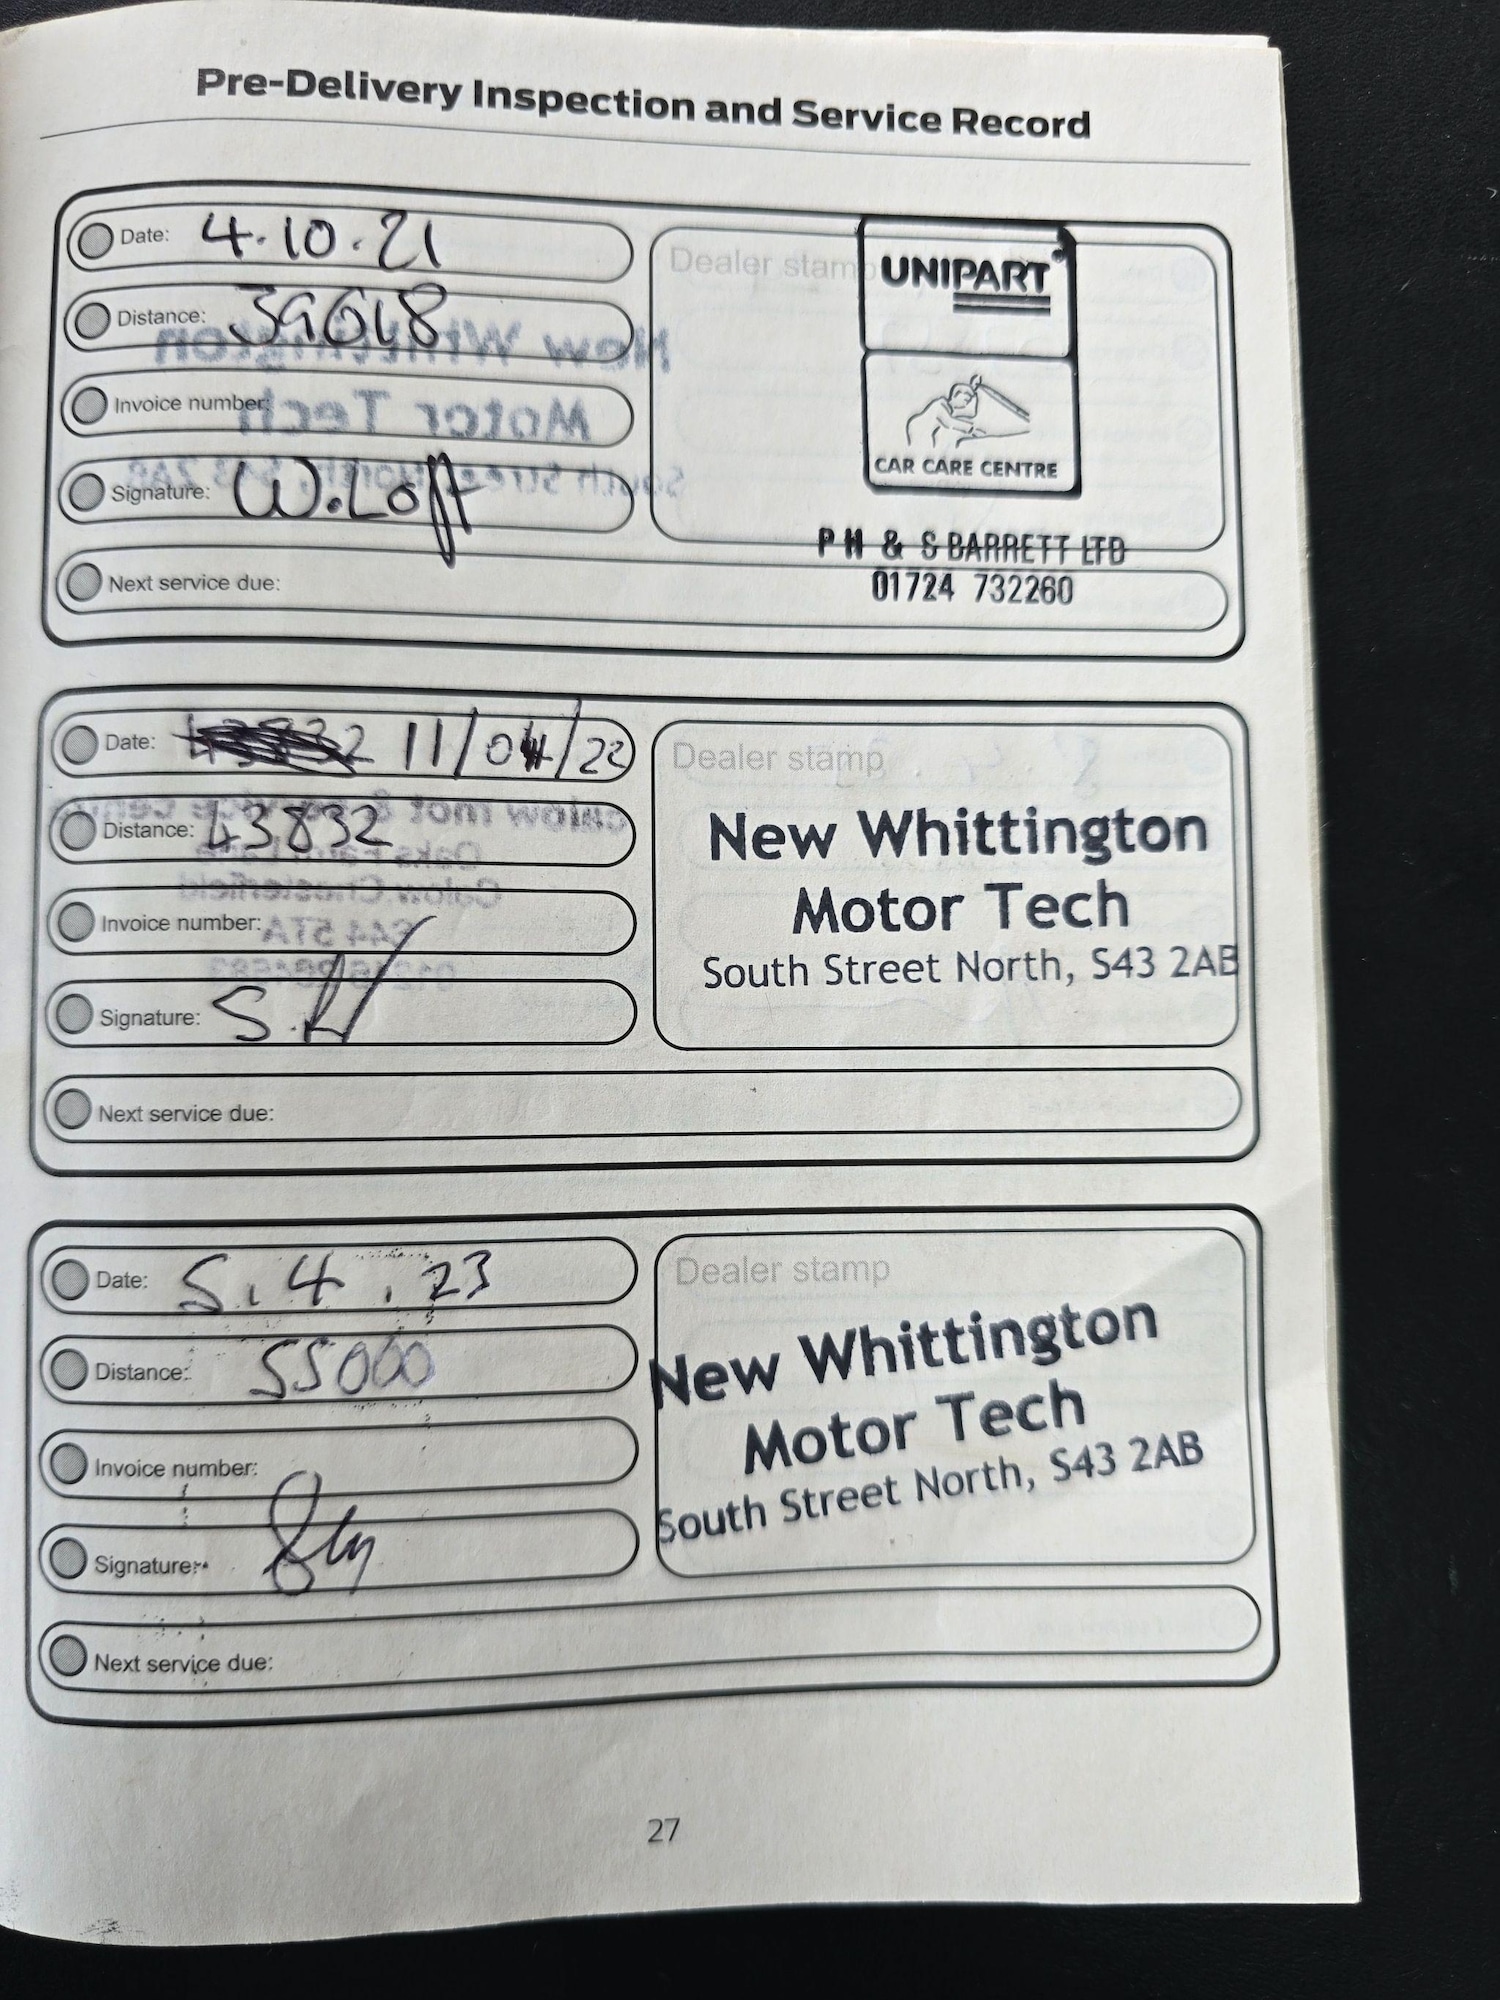 Pre-Delivery Inspection and Service Record
Date: 4.10.21
Distance: 39618
Invoice number:
Signature: W.Loft
Next service due:
Dealer stamp
UNIPART
CAR CARE CENTRE
P H & S BARRETT LTD
01724 732260
Date: 11/04/22
Distance: 43832
Invoice number:
Signature: S.
Next service due:
Dealer stamp
New Whittington
Motor Tech
South Street North, S43 2AB
Date: 5.4.23
Distance: 55000
Invoice number:
Signature:
Next service due:
Dealer stamp
New Whittington
Motor Tech
South Street North, S43 2AB
27